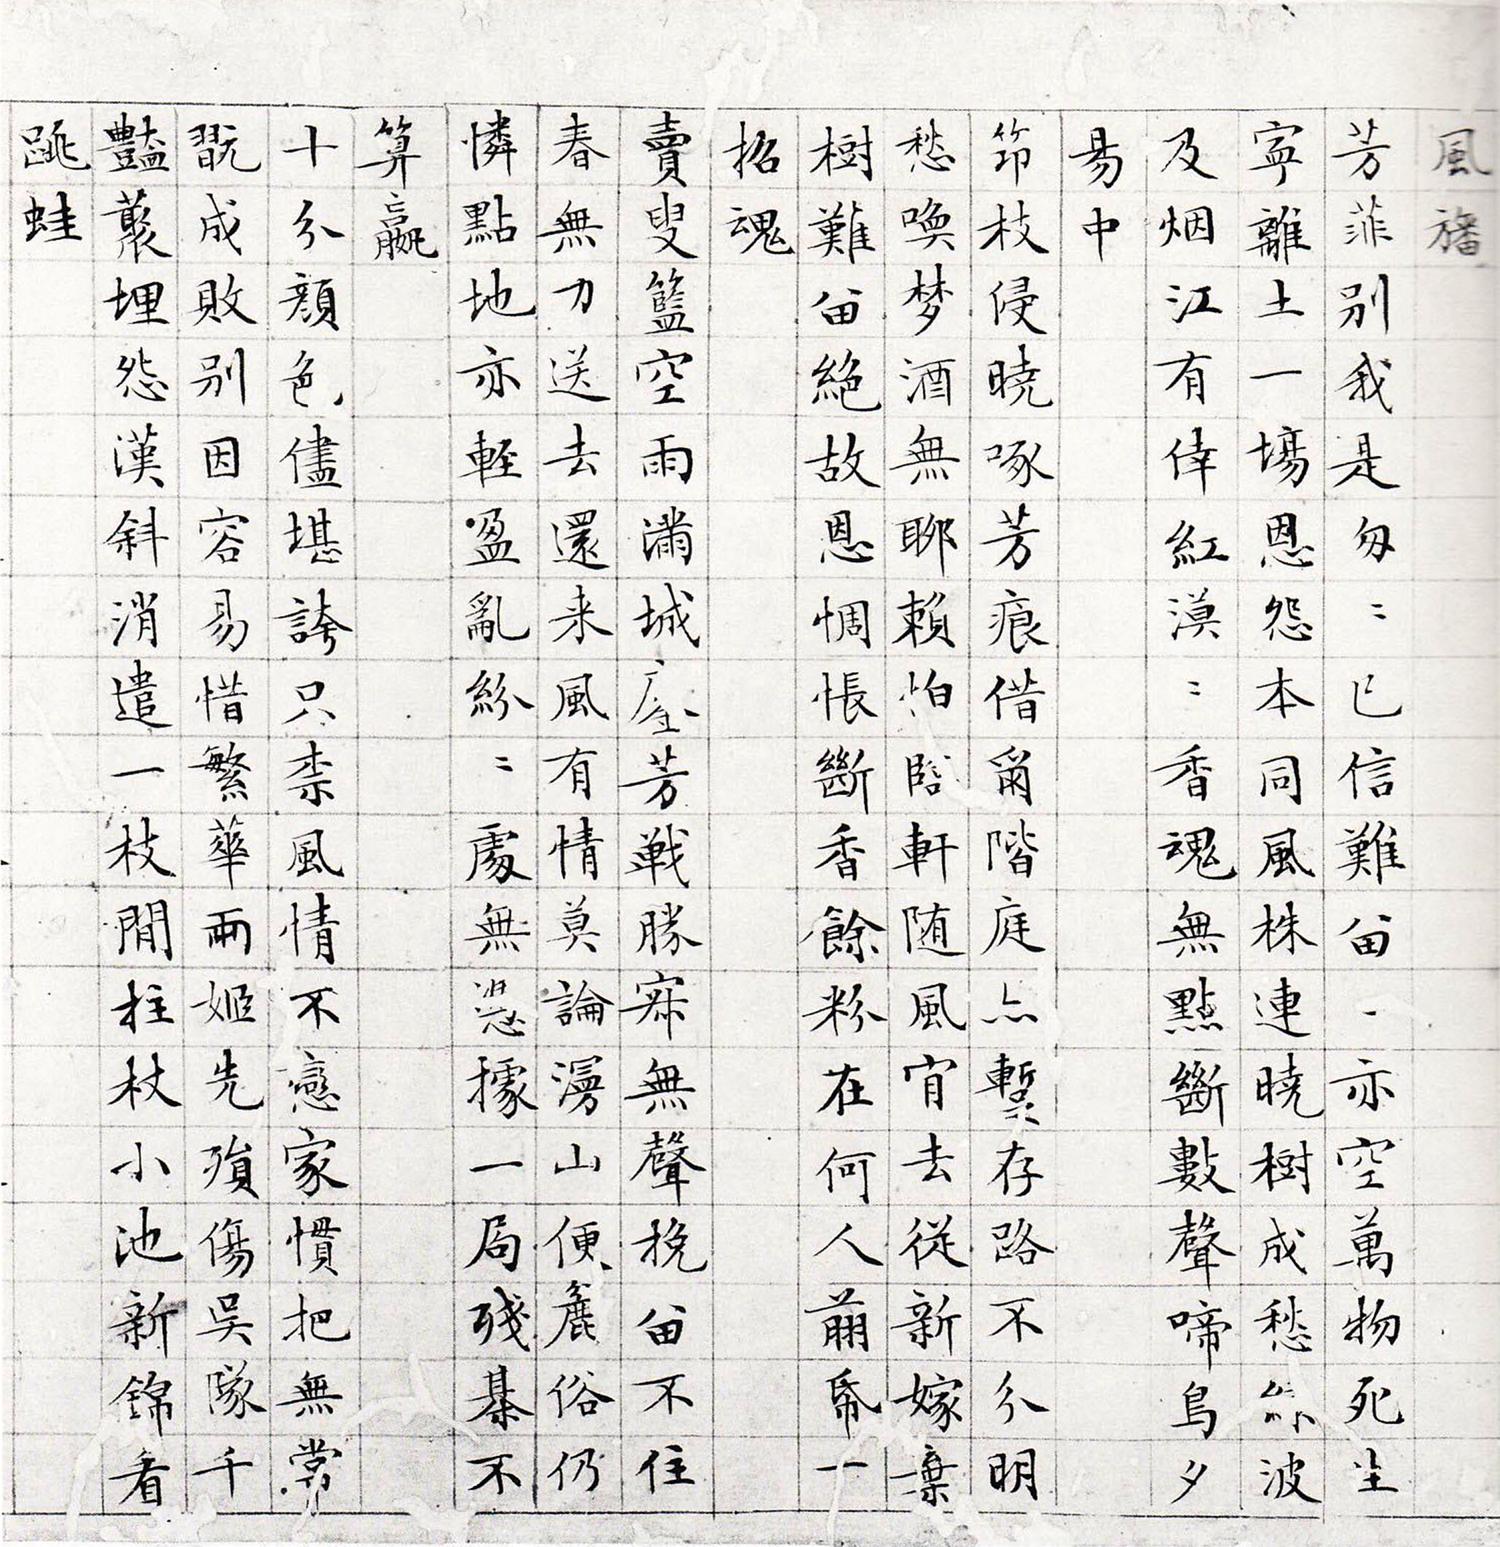 風旛
芳菲別我是匆〻已信難畱〻亦空萬物死生
寧離土一場恩怨本同風株連曉樹成愁綠波
及烟江有倖紅漠〻香魂無點斷數聲啼鳥夕
昜中
笻枝侵曉啄芳痕借爾階庭亦暫存路不分明
愁喚梦酒無聊賴怕臨軒随風肯去從新嫁棄
樹難畱絶故恩惆悵斷香餘粉在何人剪帋一
招魂
賣叟籃空雨滿城塵芳戦勝寂無聲挽畱不住
春無力送去還来風有情莫論漫山便麄俗仍
憐點地亦輕盈亂紛〻處無憑據一局殘棊不
算贏
十分顔色儘堪誇只柰風情不戀家慣把無常
翫成敗別因容易惜繁華兩姬先殞傷吳隊千
豔叢埋怨漢斜消遣一枝閒拄杖小池新錦看
跳蛙